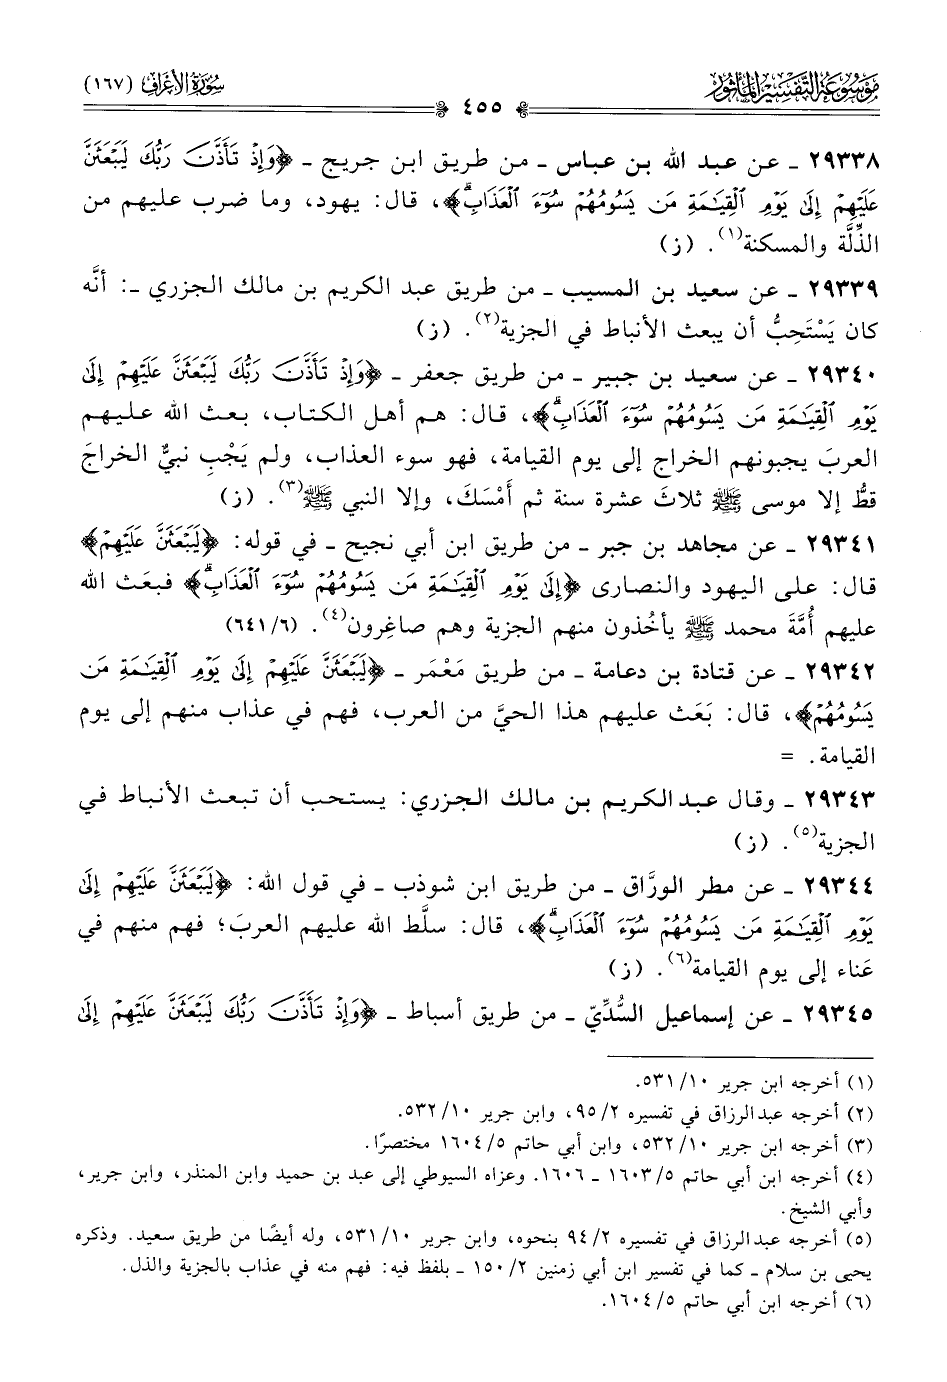 مَوْسُوعَة التَّفْسِير المَأْثُور
سُورَةُ الأَعْرَافِ (١٦٧)
٤٥٥
٢٩٣٣٨ ـ عن عبد الله بن عباس ـ من طريق ابن جريج ـ ﴿وَإِذْ تَأَذَّنَ رَبُّكَ لَيَبْعَثَنَّ
عَلَيْهِمْ إِلَىٰ يَوْمِ ٱلْقِيَٰمَةِ مَن يَسُومُهُمْ سُوٓءَ ٱلْعَذَابِۗ﴾، قال: يهود، وما ضرب عليهم من
الذِّلَّة والمسكنة(١). (ز)
٢٩٣٣٩ ـ عن سعيد بن المسيب ـ من طريق عبد الكريم بن مالك الجزري ـ: أنَّه
كان يَسْتَحِبُّ أن يبعث الأنباط في الجزية(٢). (ز)
٢٩٣٤٠ ـ عن سعيد بن جبير ـ من طريق جعفر ـ ﴿وَإِذْ تَأَذَّنَ رَبُّكَ لَيَبْعَثَنَّ عَلَيْهِمْ إِلَىٰ
يَوْمِ ٱلْقِيَٰمَةِ مَن يَسُومُهُمْ سُوٓءَ ٱلْعَذَابِۗ﴾، قال: هم أهل الكتاب، بعث الله عليهم
العربَ يجبونهم الخراج إلى يوم القيامة، فهو سوء العذاب، ولم يَجْبِ نبيٌّ الخراجَ
قطُّ إلا موسى ﷺ ثلاثَ عشرة سنة ثم أَمْسَكَ، وإلا النبي ﷺ(٣). (ز)
٢٩٣٤١ ـ عن مجاهد بن جبر ـ من طريق ابن أبي نجيح ـ في قوله: ﴿لَيَبْعَثَنَّ عَلَيْهِمْ﴾
قال: على اليهود والنصارى ﴿إِلَىٰ يَوْمِ ٱلْقِيَٰمَةِ مَن يَسُومُهُمْ سُوٓءَ ٱلْعَذَابِۗ﴾ فبعَث الله
عليهم أُمَّةَ محمد ﷺ يأخُذون منهم الجزية وهم صاغِرون(٤). (٦/ ٦٤١)
٢٩٣٤٢ ـ عن قتادة بن دعامة ـ من طريق مَعْمَر ـ ﴿لَيَبْعَثَنَّ عَلَيْهِمْ إِلَىٰ يَوْمِ ٱلْقِيَٰمَةِ مَن
يَسُومُهُمْ﴾، قال: بَعَث عليهم هذا الحيَّ من العرب، فهم في عذاب منهم إلى يوم
القيامة. =
٢٩٣٤٣ ـ وقال عبدالكريم بن مالك الجزري: يستحب أن تبعث الأنباط في
الجزية(٥). (ز)
٢٩٣٤٤ ـ عن مطر الورَّاق ـ من طريق ابن شوذب ـ في قول الله: ﴿لَيَبْعَثَنَّ عَلَيْهِمْ إِلَىٰ
يَوْمِ ٱلْقِيَٰمَةِ مَن يَسُومُهُمْ سُوٓءَ ٱلْعَذَابِۗ﴾، قال: سلَّط الله عليهم العربَ؛ فهم منهم في
عَناء إلى يوم القيامة(٦). (ز)
٢٩٣٤٥ ـ عن إسماعيل السُّدِّيّ ـ من طريق أسباط ـ ﴿وَإِذْ تَأَذَّنَ رَبُّكَ لَيَبْعَثَنَّ عَلَيْهِمْ إِلَىٰ
(١) أخرجه ابن جرير ١٠/ ٥٣١.
(٢) أخرجه عبدالرزاق في تفسيره ٢/ ٩٥، وابن جرير ١٠/ ٥٣٢.
(٣) أخرجه ابن جرير ١٠/ ٥٣٢، وابن أبي حاتم ٥/ ١٦٠٤ مختصرًا.
(٤) أخرجه ابن أبي حاتم ٥/ ١٦٠٣ ـ ١٦٠٦. وعزاه السيوطي إلى عبد بن حميد وابن المنذر، وابن جرير،
وأبي الشيخ.
(٥) أخرجه عبدالرزاق في تفسيره ٢/ ٩٤ بنحوه، وابن جرير ١٠/ ٥٣١، وله أيضًا من طريق سعيد. وذكره
يحيى بن سلام ـ كما في تفسير ابن أبي زمنين ٢/ ١٥٠ ـ بلفظ فيه: فهم منه في عذاب بالجزية والذل.
(٦) أخرجه ابن أبي حاتم ٥/ ١٦٠٤.